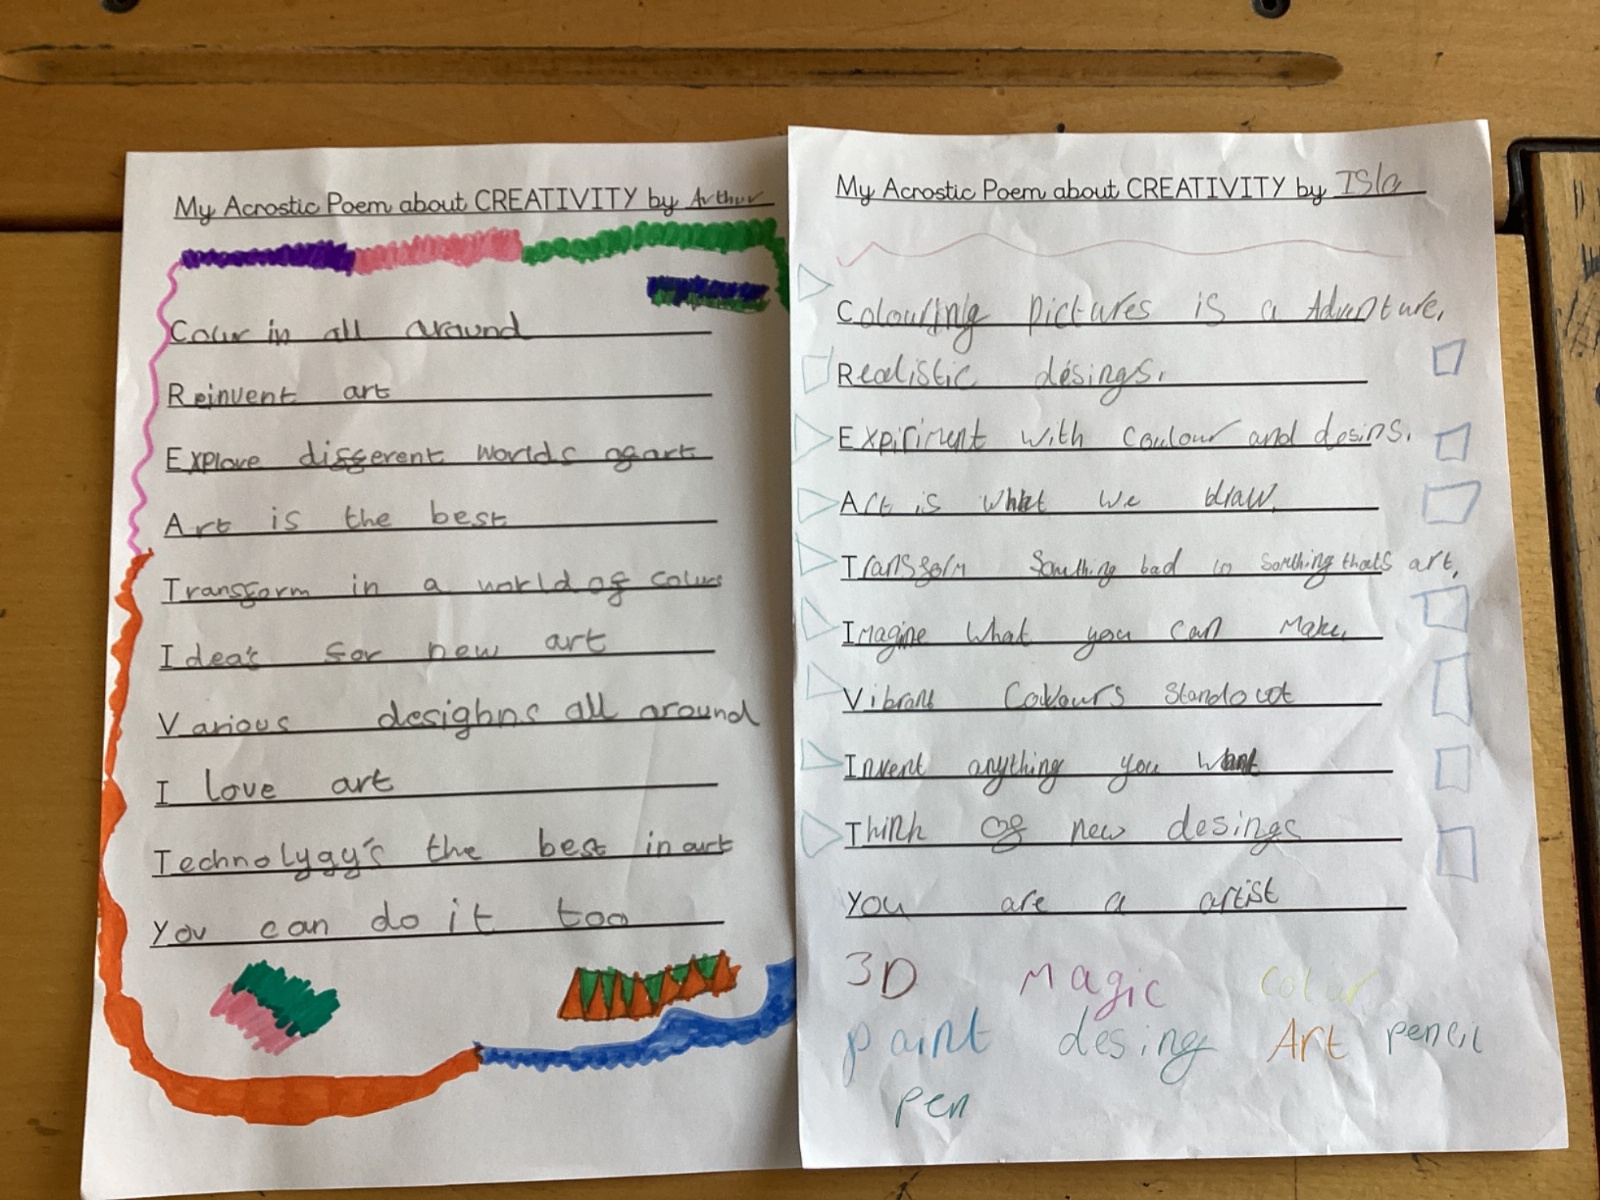 My Acrostic Poem about CREATIVITY by Arthur
Colour in all around
Reinvent art
Explore different worlds of art
Art is the best
Transform in a world of colour
Idea's for new art
Various desighns all around
I love art
Technolygy's the best in art
You can do it too
My Acrostic Poem about CREATIVITY by Isla
Colouring pictures is a Adventure,
Realistic desings.
Expiriment with Coulour and desins.
Art is what we draw.
Transform Something bad to something thats art,
Imagine what you can make,
Vibrant Colours standout
Invent anything you want
Think of new desings
You are a artist
3D Magic color
paint desing Art pencil
pen